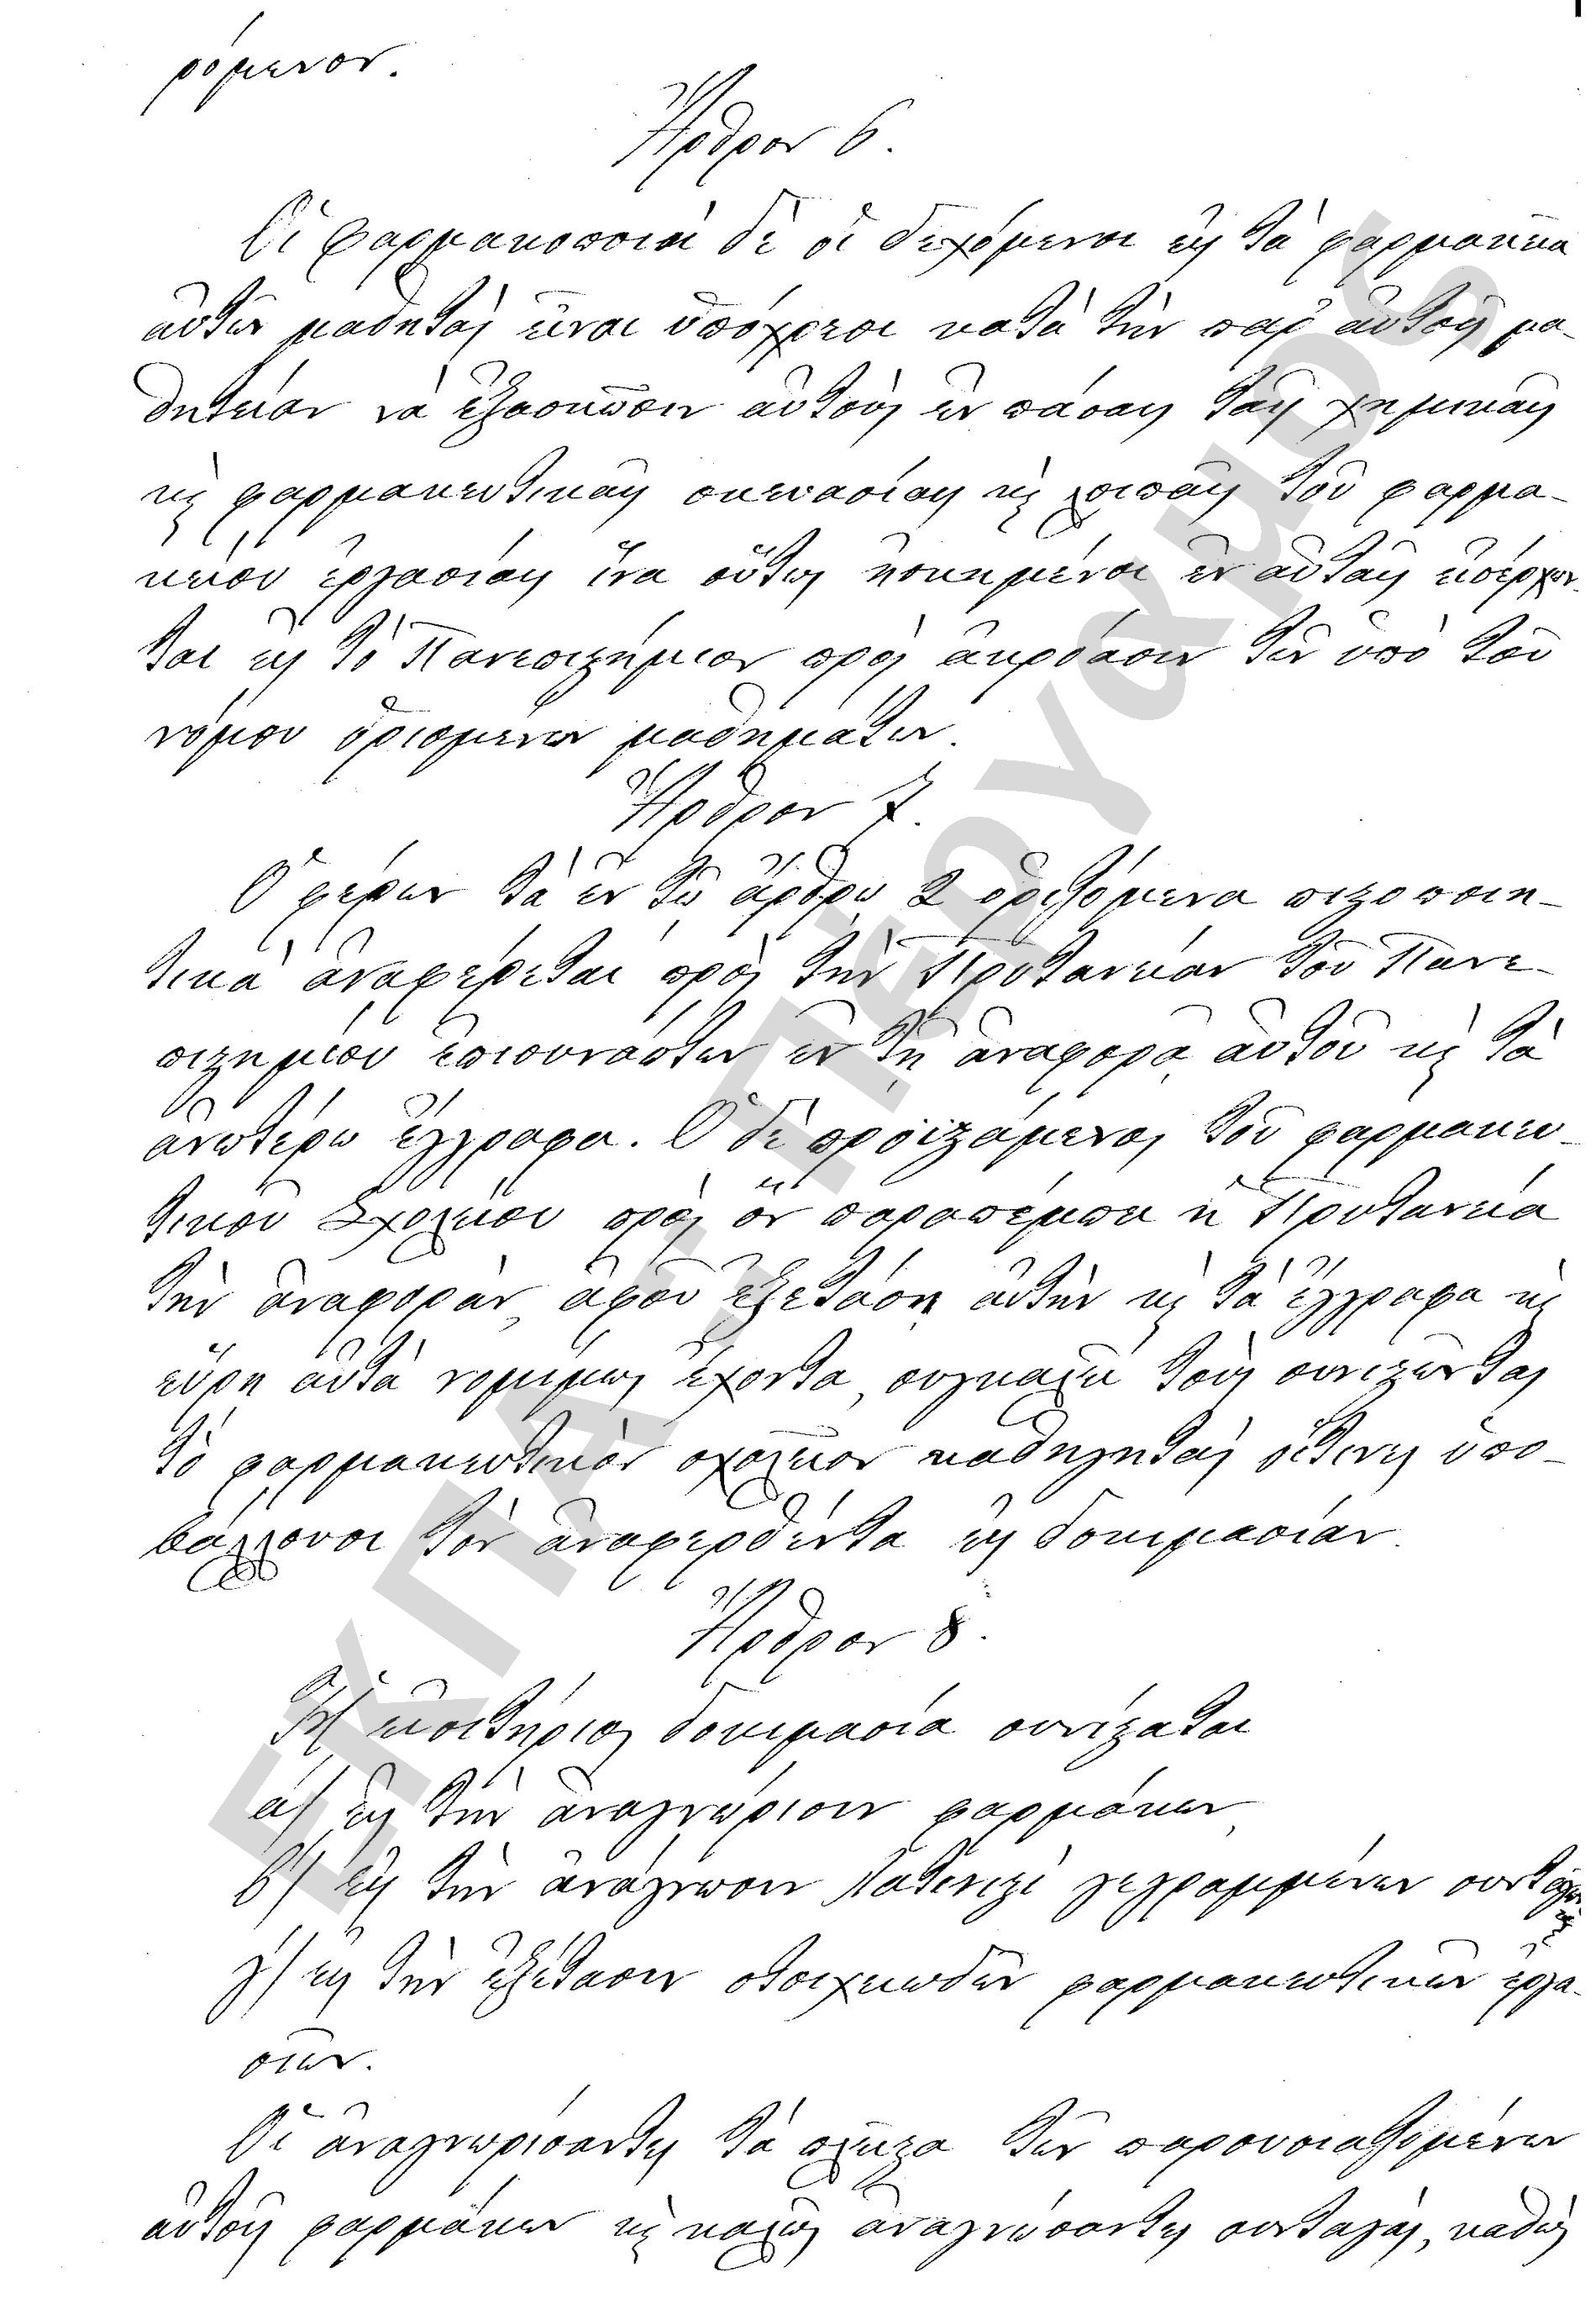 ρόμενον.
Ἄρθρον 6.
Οἱ φαρμακοποιοὶ δὲ οἱ δεχόμενοι εἰς τὰ φαρμακεῖα
αὐτῶν μαθητὰς εἶναι ὑπόχρεοι κατὰ τὴν παρ' αὐτοῖς μα-
θητείαν νὰ ἐξασκῶσιν αὐτοὺς ἐν πάσαις ταῖς χημικαῖς
κὶ φαρμακευτικαῖς σκευασίαις κὶ λοιπαῖς τοῦ φαρμα-
κείου ἐργασίαις ἵνα οὕτως ἠσκημένοι ἐν αὐταῖς εἰσέρχων-
ται εἰς τὸ Πανεπιστήμιον πρὸς ἀκρόασιν τῶν ὑπὸ τοῦ
νόμου ὁρισμένων μαθημάτων.
Ἄρθρον 7.
Ὁ φέρων τὰ ἐν τῷ ἄρθρῳ 2 ὁριζόμενα πιστοποιη-
τικὰ ἀναφέρεται πρὸς τὴν Πρυτανείαν τοῦ Πανε-
πιστημίου ἐπισυνάπτων ἐν τῇ ἀναφορᾷ αὐτοῦ κὶ τὰ
ἀνωτέρω ἔγγραφα. Ὁ δὲ προϊστάμενος τοῦ φαρμακευ-
τικοῦ Σχολείου πρὸς ὃν παραπέμπει ἡ Πρυτανεία
τὴν ἀναφορὰν, ἀφοῦ ἐξετάσῃ αὐτὴν κὶ τὰ ἔγγραφα κὶ
εὕρῃ αὐτὰ νομίμως ἔχοντα, συγκαλεῖ τοὺς συνιστῶντας
τὸ φαρμακευτικὸν σχολεῖον καθηγητὰς οἵτινες ὑπο-
βάλλουσι τὸν ἀναφερθέντα εἰς δοκιμασίαν.
Ἄρθρον 8.
Ἡ εἰσιτήριος δοκιμασία συνίσταται
α΄/ εἰς τὴν ἀναγνώρισιν φαρμάκων,
β΄/ εἰς τὴν ἀνάγνωσιν Λατινιστὶ γεγραμμένων συνταγῶν
γ΄/ εἰς τὴν ἐξέτασιν στοιχειωδῶν φαρμακευτικῶν ἐργα-
σιῶν.
Οἱ ἀναγνωρίσαντες τὰ πλεῖστα τῶν παρουσιαζομένων
αὐτοῖς φαρμάκων κὶ καλῶς ἀναγνώσαντες συνταγὰς, καθὼς
ΕΚΠΑ - ΠΕΡΓΑΜΟΣ